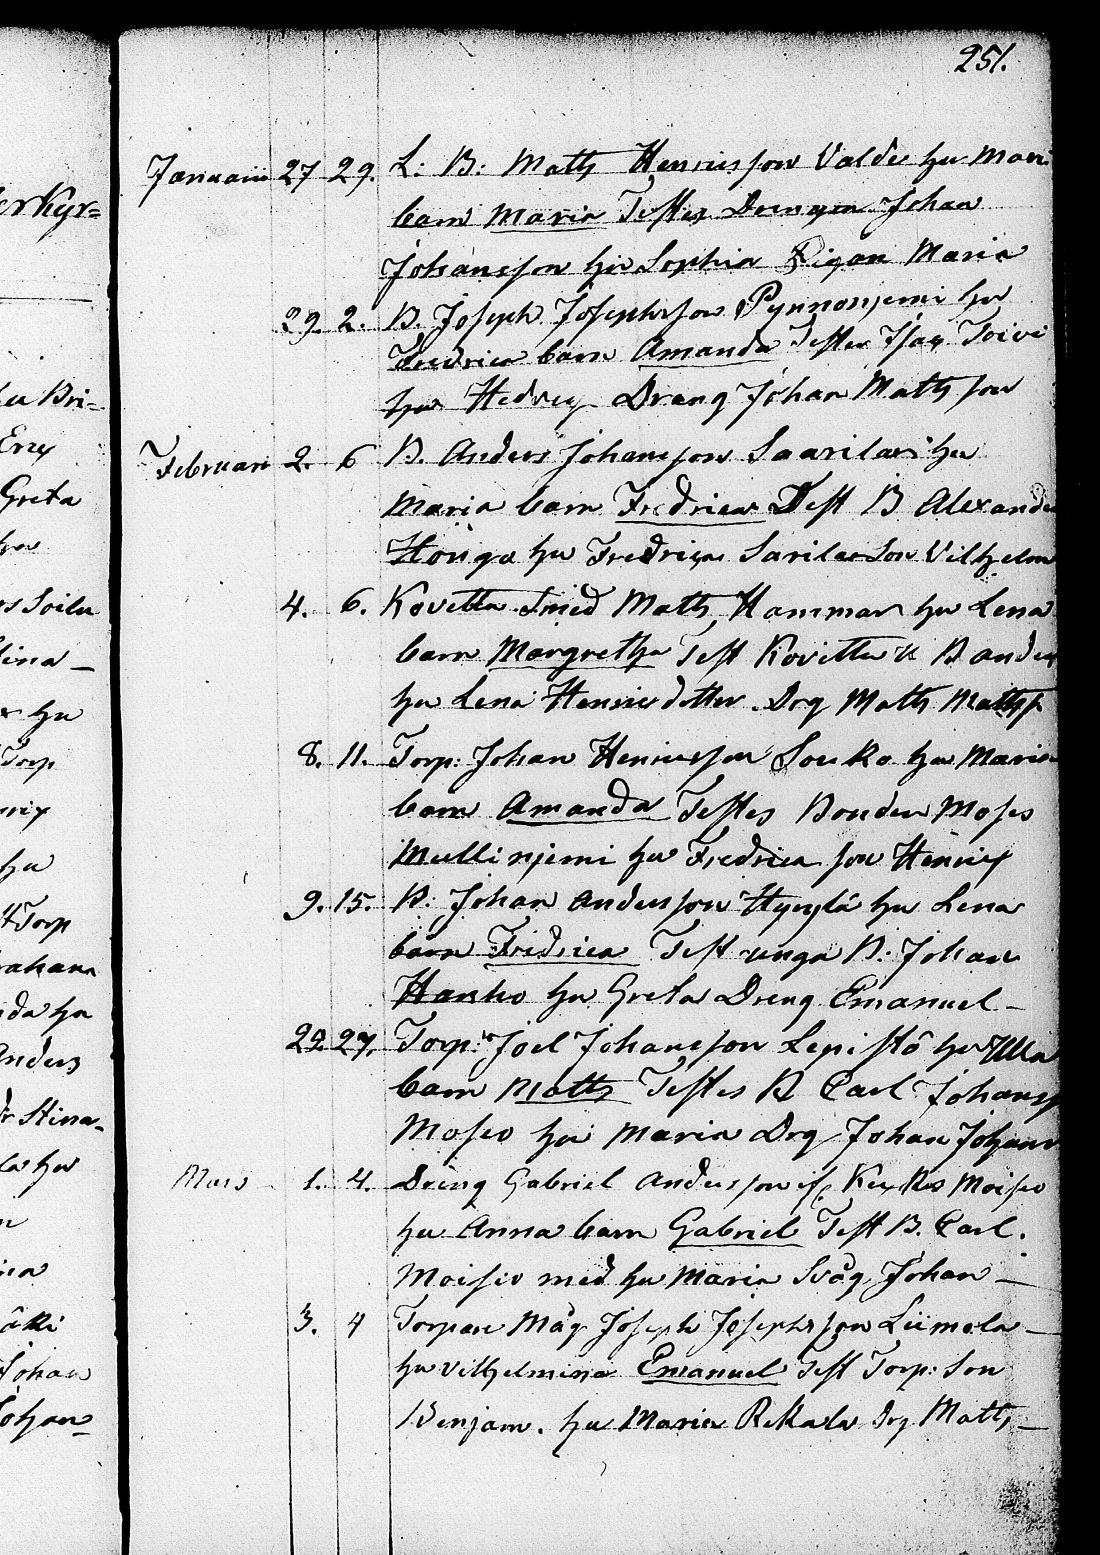 251.
Januarii 27 29. L: B: Matts Henricsson Valde hu Mari
barn Maria Testes Drengen Johan
Johansson hu Sophia Pigan Maria
29. 2. B. Joseph Josephsson Pynnönjemi hu
Fredrica barn Amanda Testes Isac Toivi
hu Hedvig Dräng Johan Matts son
Februari 2. 6 B. Anders Johansson Saarilas hu
Maria barn Fredrica Test B Alexande
Honga hu Fredrica Sarilas Son Vilhelm
4. 6. Smed Matts Hammar hu Lena
barn Margretha Test B ander
hu Lena Henricsdotter Drg Matts Matts
8. 11. Torp: Johan Henricsson Souko hu Maria
barn Amanda Testes Bonden Moses
Mullinjemi hu Fredrica son Henric
9. 15. B. Johan Andersson hu Lena
barn Fredrica Test unga B. Johan
Hanho hu Greta Dreng Emanuel
22 27. Torp: Joel Johansson Lepistö hu Ulla
barn Matts Testes B Carl Johans
Moisio hu Maria Drg Johan Johans
Mars 1. 4. Dreng Gabriel Andersson Moisio
hu Anna barn Gabriel Test B. Carl.
Moisio med hu Maria Svåg. Johan
3. 4 Torpare Måg Joseph Josephsson Liimola
hu Vilhelmina Emanuel Test Torp: Son
Benjam. hu Maria Rekala Drg Matts
erkyr=
Bri=
Greta
Soilu
hu
Torp
hu
Torp
rahana
da hu
Anders
Stina
hu
Johan
Johan